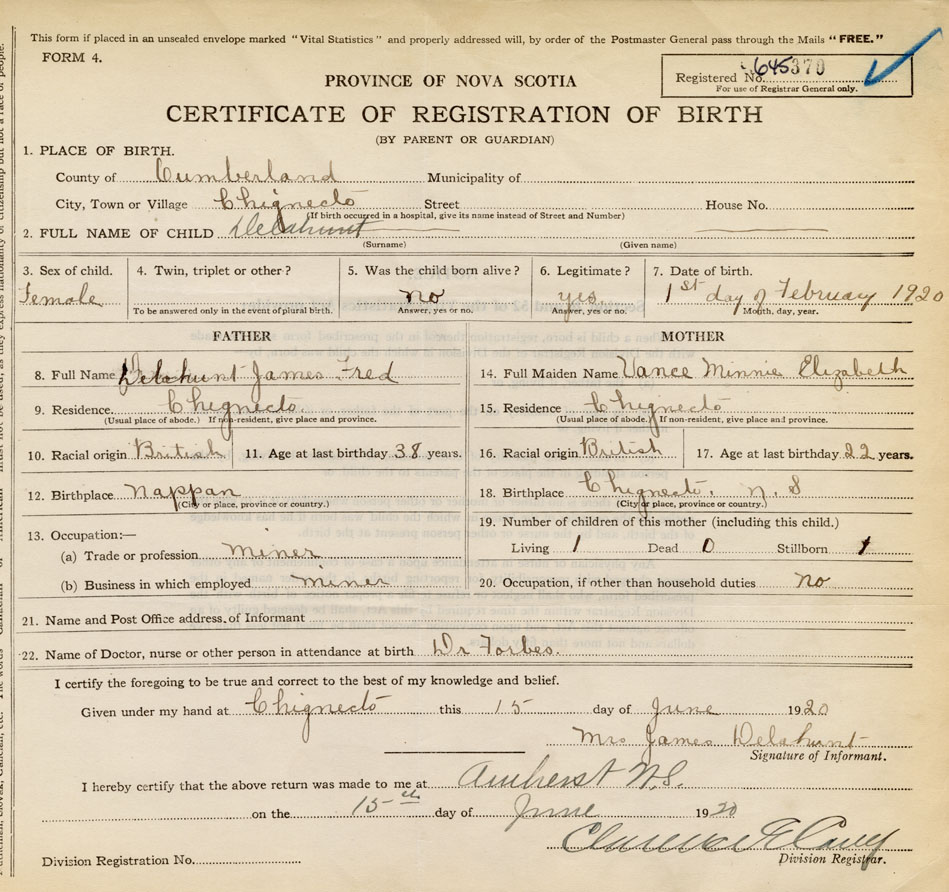 This form if placed in an unsealed envelope marked "Vital Statistics" and properly addressed will, by order of the Postmaster General pass through the Mails "FREE."
FORM 4.
Registered No. 645370
For use of Registrar General only.
PROVINCE OF NOVA SCOTIA
CERTIFICATE OF REGISTRATION OF BIRTH
(BY PARENT OR GUARDIAN)
1. PLACE OF BIRTH.
County of Cumberland Municipality of
City, Town or Village Chignecto Street House No.
(If birth occurred in a hospital, give its name instead of Street and Number)
2. FULL NAME OF CHILD Delahunt
(Surname) (Given name)
3. Sex of child. 4. Twin, triplet or other? 5. Was the child born alive? 6. Legitimate? 7. Date of birth.
Female no yes 1st day of February 1920
To be answered only in the event of plural birth. Answer, yes or no. Answer, yes or no. Month, day, year.
FATHER MOTHER
8. Full Name Delahunt James Fred 14. Full Maiden Name Vance Minnie Elizabeth
9. Residence Chignecto. 15. Residence Chignecto
(Usual place of abode.) If non-resident, give place and province. (Usual place of abode.) If non-resident, give place and province.
10. Racial origin British 11. Age at last birthday 38 years. 16. Racial origin British 17. Age at last birthday 22 years.
12. Birthplace Nappan 18. Birthplace Chignecto. N. S
(City or place, province or country.) (City or place, province or country.)
13. Occupation:— 19. Number of children of this mother (including this child.)
(a) Trade or profession Miner Living 1 Dead 0 Stillborn 1
(b) Business in which employed miner 20. Occupation, if other than household duties no
21. Name and Post Office address of Informant
22. Name of Doctor, nurse or other person in attendance at birth Dr Forbes.
I certify the foregoing to be true and correct to the best of my knowledge and belief.
Given under my hand at Chignecto this 15 day of June 1920
Mrs James Delahunt
Signature of Informant.
I hereby certify that the above return was made to me at Amherst N.S.
on the 15th day of June 1920
Clarence
Division Registration No. Division Registrar.